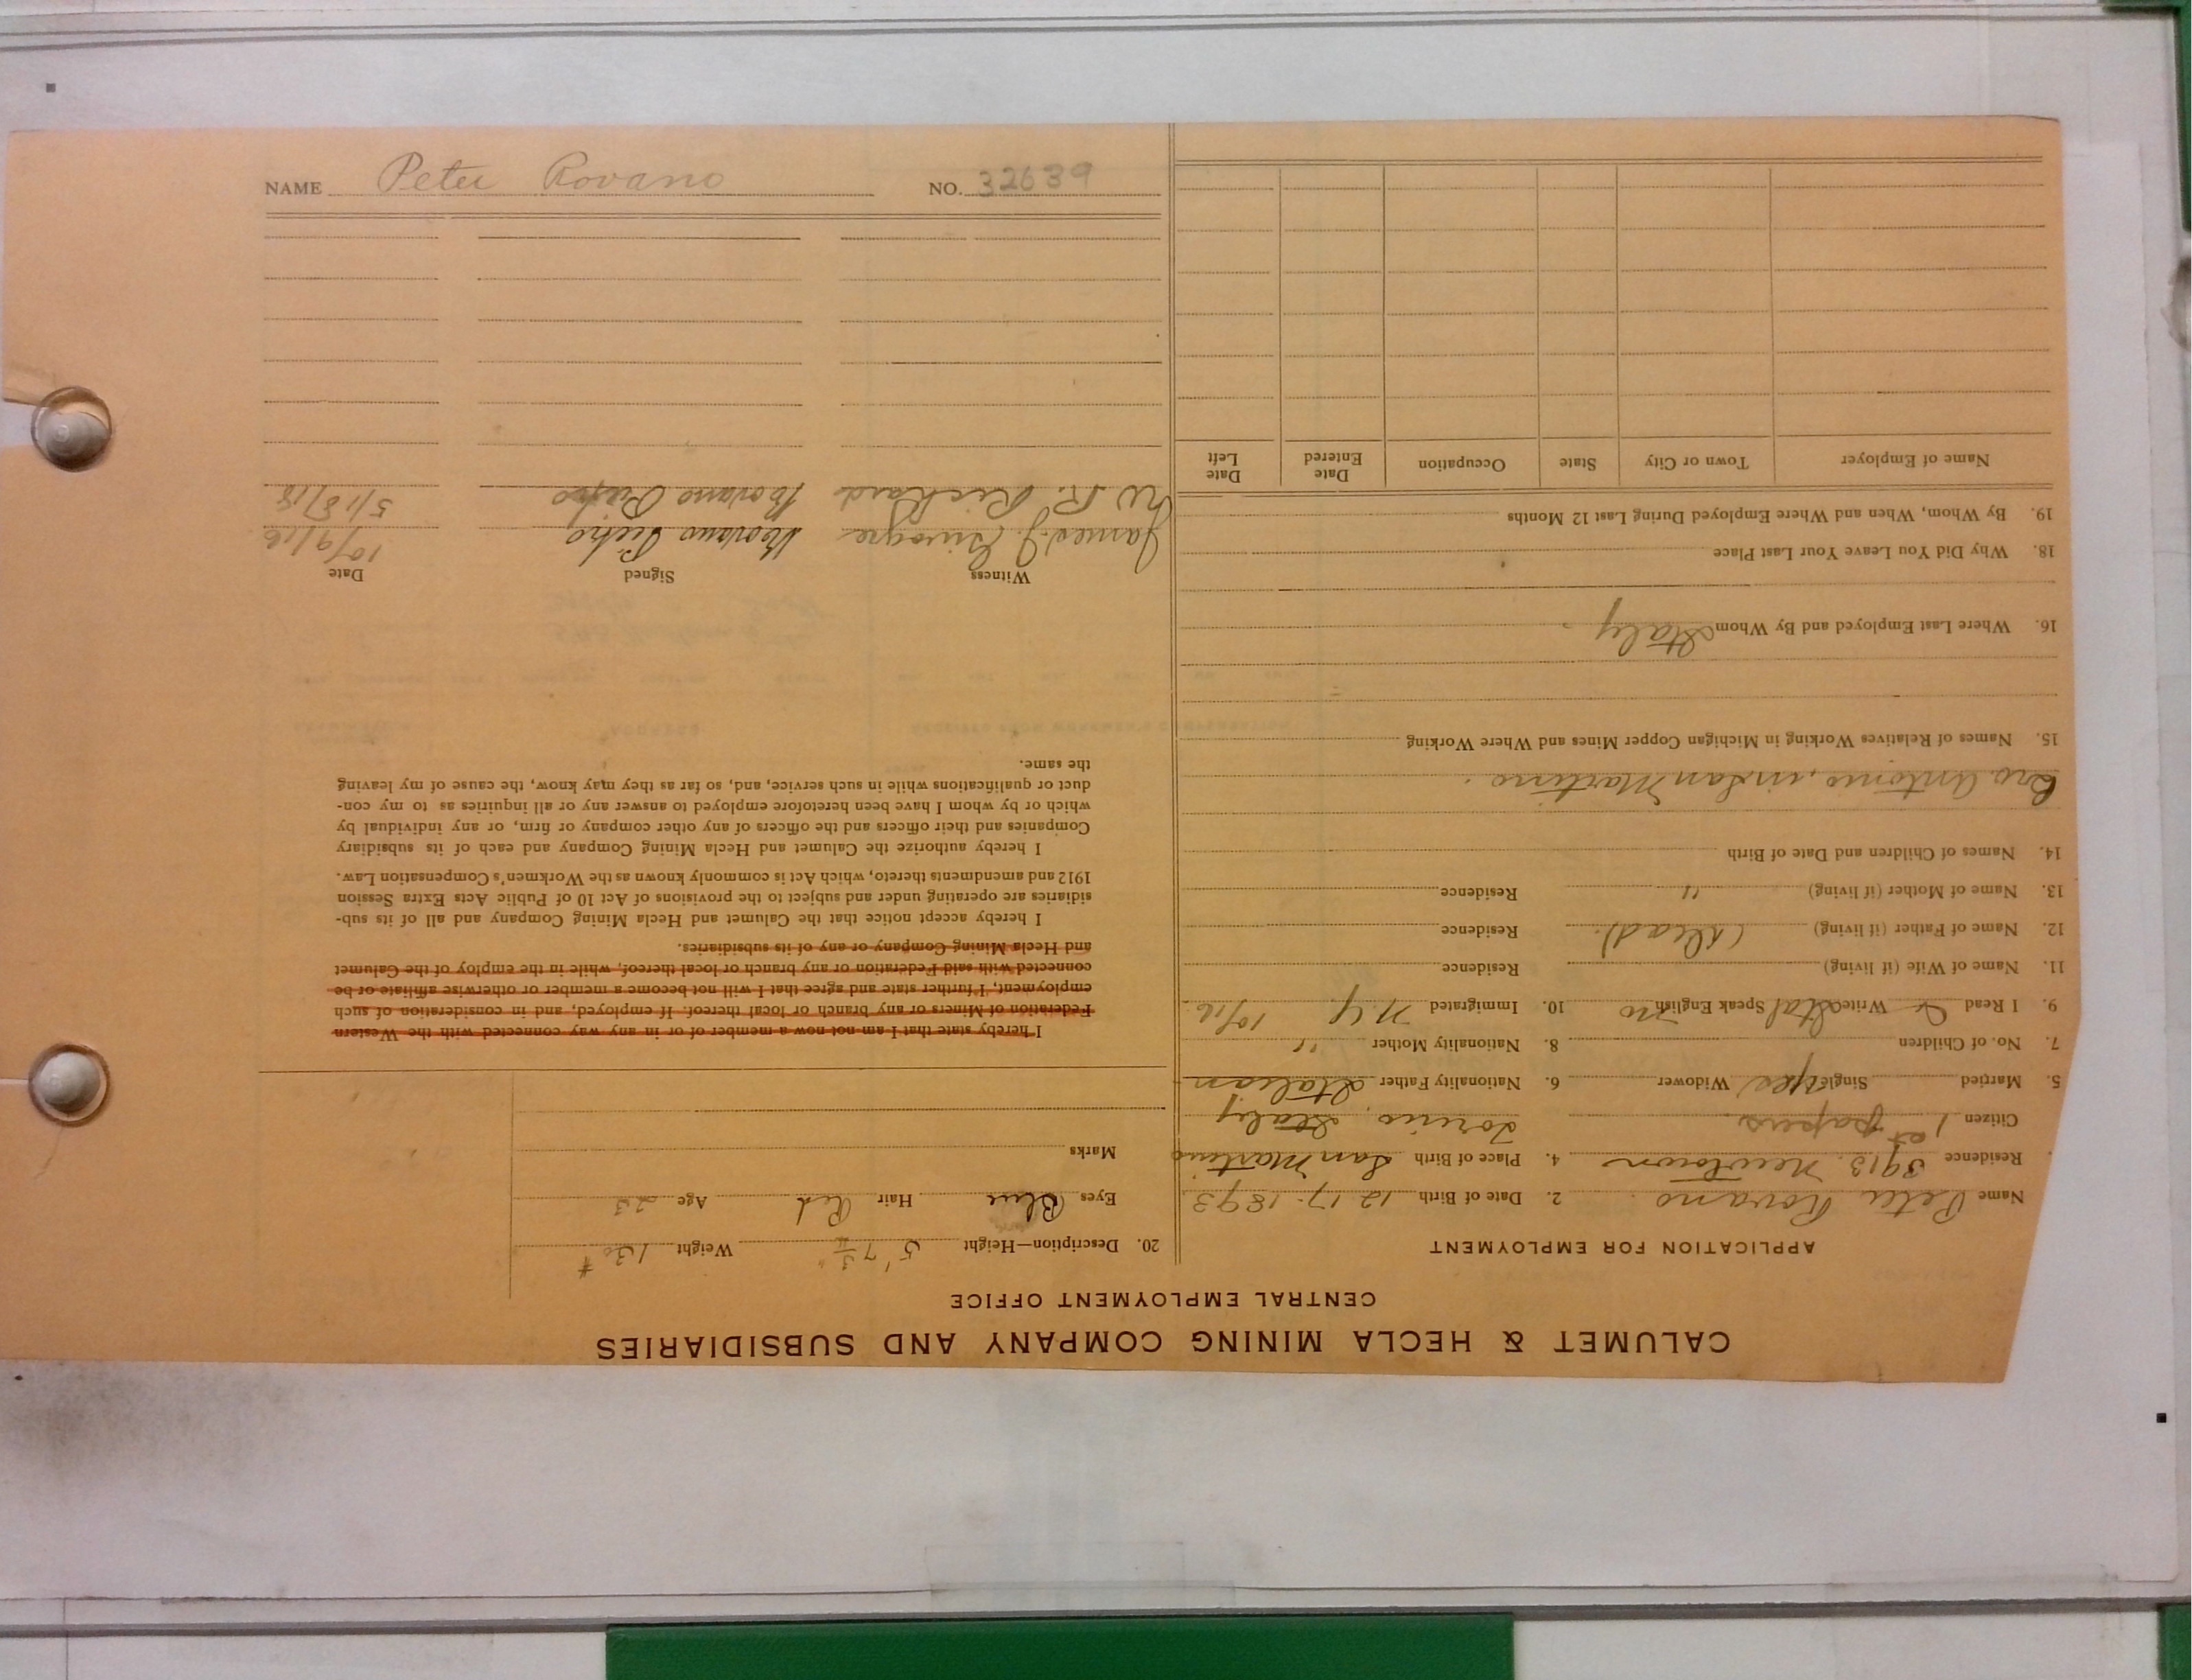 CALUMET & HECLA MINING COMPANY AND SUBSIDIARIES
CENTRAL EMPLOYMENT OFFICE
APPLICATION FOR EMPLOYMENT
Name Peter Rovano
Residence 3913. Newtown
Citizen 1st papers.
5. Married Single yes Widower
7. No. of Children
9. I Read & Write Ital Speak English no
11. Name of Wife (if living) Residence
12. Name of Father (if living) (dead). Residence
13. Name of Mother (if living) " Residence
14. Names of Children and Date of Birth
Bro Antonio, in San Martino.
15. Names of Relatives Working in Michigan Copper Mines and Where Working
16. Where Last Employed and By Whom Italy.
18. Why Did You Leave Your Last Place
19. By Whom, When and Where Employed During Last 12 Months
Name of Employer Town or City State Occupation Date Entered Date Left
2. Date of Birth 12-17-1893
4. Place of Birth San Martino
Torino, Italy
6. Nationality Father Italian
8. Nationality Mother "
10. Immigrated N.Y. 10/16
20. Description—Height 5' 7 3/4" Weight 130 #
Eyes Blue Hair Red Age 23
Marks
I hereby state that I am not now a member of or in any way connected with the Western
Federation of Miners or any branch or local thereof. If employed, and in consideration of such
employment, I further state and agree that I will not become a member or otherwise affiliate or be
connected with said Federation or any branch or local thereof, while in the employ of the Calumet
and Hecla Mining Company or any of its subsidiaries.
I hereby accept notice that the Calumet and Hecla Mining Company and all of its sub-
sidiaries are operating under and subject to the provisions of Act 10 of Public Acts Extra Session
1912 and amendments thereto, which Act is commonly known as the Workmen's Compensation Law.
I hereby authorize the Calumet and Hecla Mining Company and each of its subsidiary
Companies and their officers and the officers of any other company or firm, or any individual by
which or by whom I have been heretofore employed to answer any or all inquiries as to my con-
duct or qualifications while in such service, and, so far as they may know, the cause of my leaving
the same.
Witness Signed Date
James J. Rovano Pietro 10/9/16
W. R. Rickard Rovano Pietro 5/18/18
NAME Peter Rovano NO. 32639